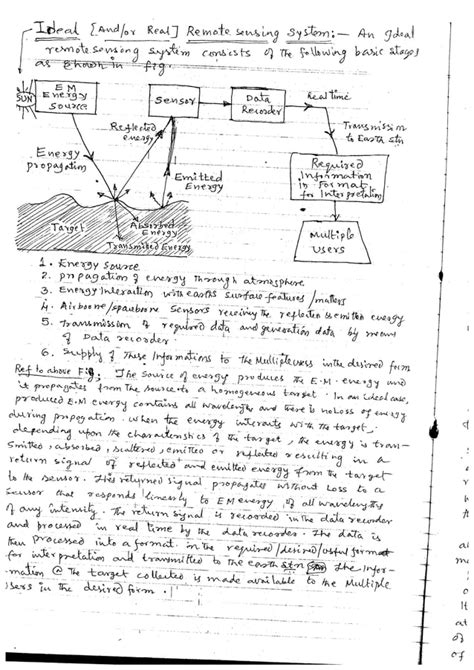 Ideal [And/or Real] Remote sensing System:— An Ideal
remote sensing system consists of the following basic stages
as shown in fig.
SUN
EM
Energy
Source
Sensor
Data
Recorder
Real time
Transmission
to Earth stn
Reflected
energy
Energy
propagation
Emitted
Energy
Required
Information
in Format
for Interpretation
Target
Absorbed
Energy
Transmitted Energy
Multiple
Users
1. Energy Source
2. propagation of energy through atmosphere
3. Energy Interaction with earths surface features / matters
4. Airborne/spaceborne Sensors receiving the reflected & emitted energy
5. Transmission of required data and generation data by means
of Data recorder
6. Supply of These Informations to the Multiple users in the desired form
Ref to above Fig: The Source of energy produces the E.M. energy and
it propagates from the source to a homogeneous target. In an ideal case,
produced E.M energy contains all wavelengths and there is no Loss of energy
during propagation. When the energy interacts with the target,
depending upon the characteristics of the target, the energy is tran-
smitted, absorbed, scattered, emitted or reflected resulting in a
return signal of reflected and emitted energy from the target
to the sensor. This returned signal propagates without Loss to a
Sensor that responds linearly to EM energy of all wavelengths
of any intensity. The return signal is recorded in the data recorder
and processed in real time by the data recorder. The data is
then processed into a format in the required/desired/useful format
for interpretation and transmitted to the earth stn The Infor-
mation @ the target collected is made available to the Multiple
Users in the desired form.